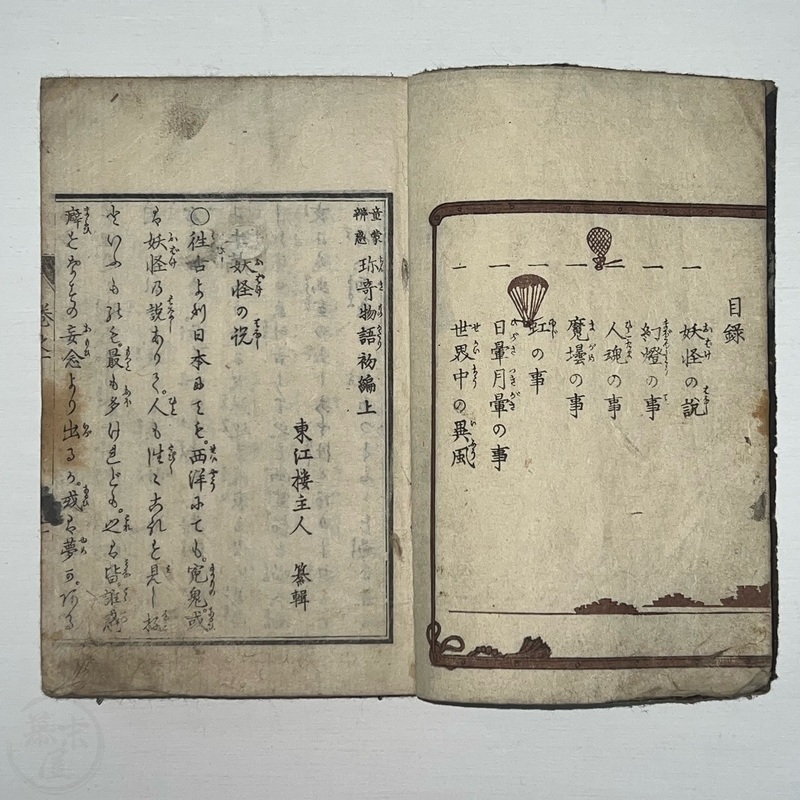 目録
一 妖怪の説
一 幻燈の事
一 人魂の事
一 魔壜の事
一 虹の事
一 日暈月暈の事
一 世界中の異風
童蒙辨惑 珎奇物語初編上
東江楼主人 纂輯
妖怪の説
○徃古より 日本 西洋にても。冤鬼或
は妖怪の説ありて。人も往々これを見し抔
といふも 最も多けれども。 皆
癖 その妄念より出るか。或は夢か。
巻之